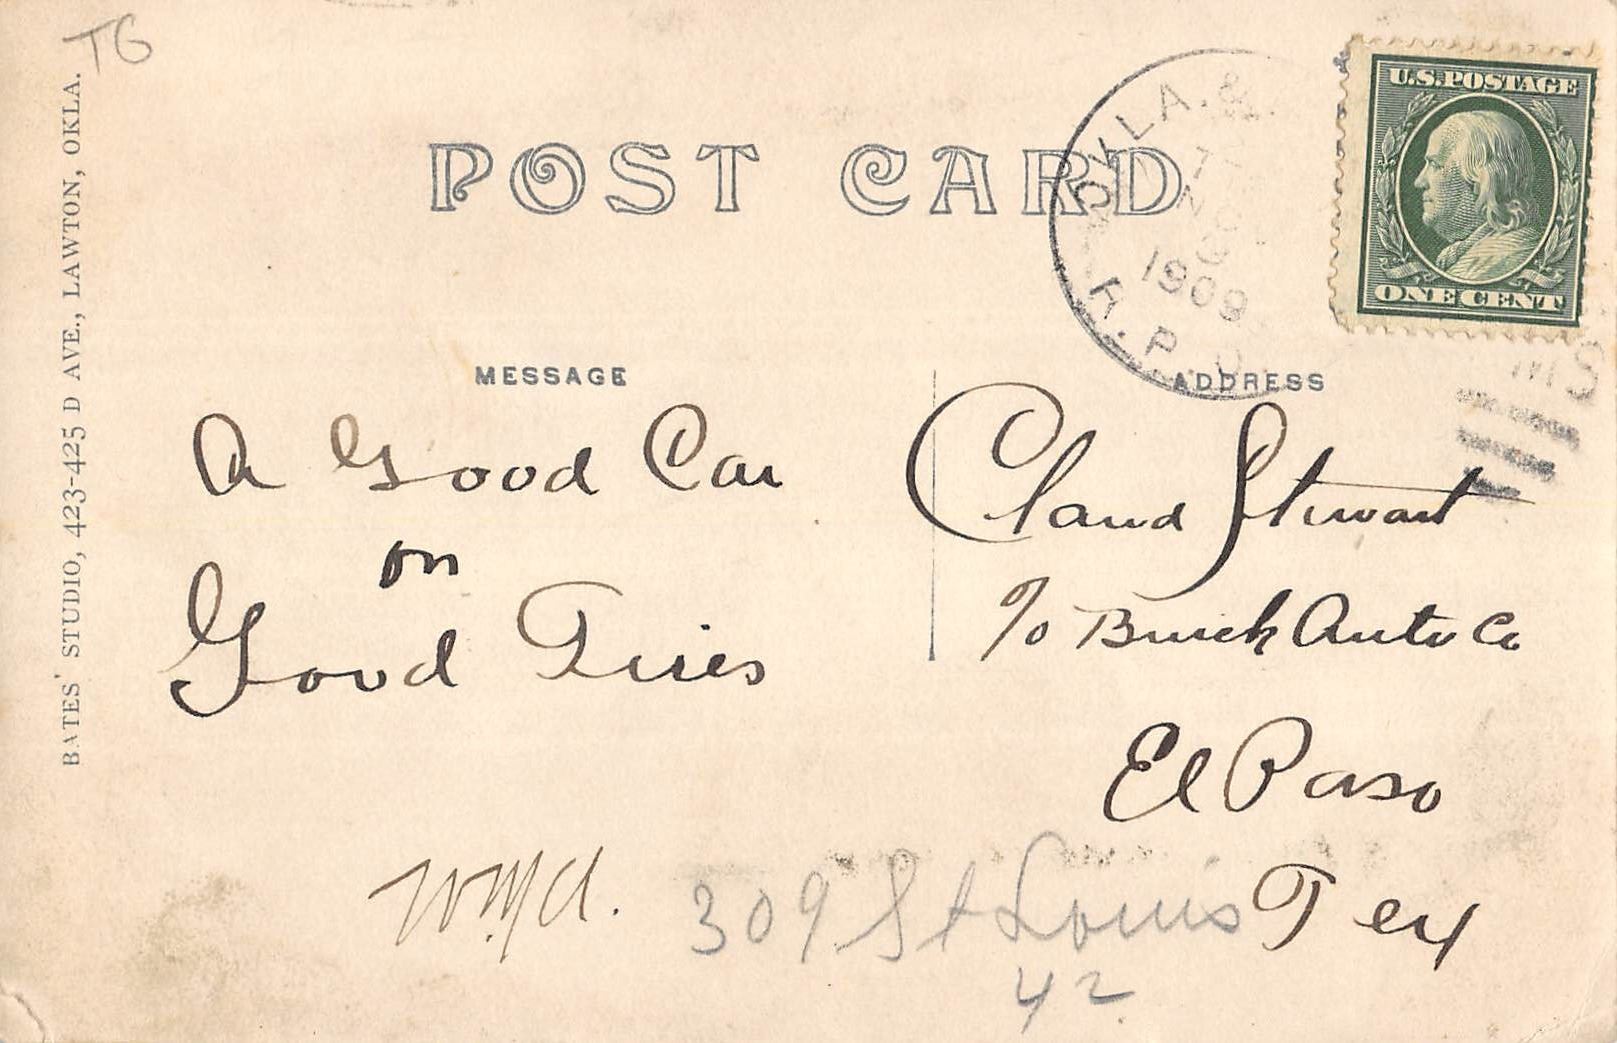 TG
BATES' STUDIO, 423-425 D AVE., LAWTON, OKLA.
POST CARD
U.S. POSTAGE
ONE CENT
1909
R.P.O.
MESSAGE
ADDRESS
A Good Car
on
Good Tires
Claud Stewart
c/o Buick Auto Co
El Paso
Tex
309 St Louis
42